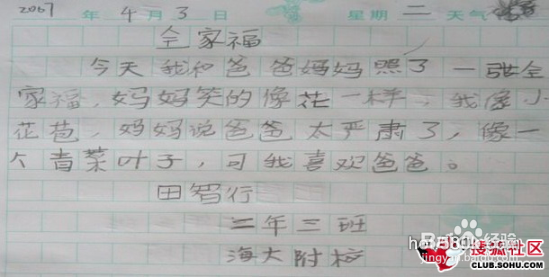 2007 年 4 月 3 日 星期 二 天气
全家福
今天 我和爸 爸妈妈 照了 一张全
家福,妈妈笑的像花一样,我像小
花苞,妈妈说爸爸 太严肃了,像一
个青菜叶子,可我喜欢爸爸。
田智行
二年三班
海大附校
搜狐社区
CLUB.SOHU.COM